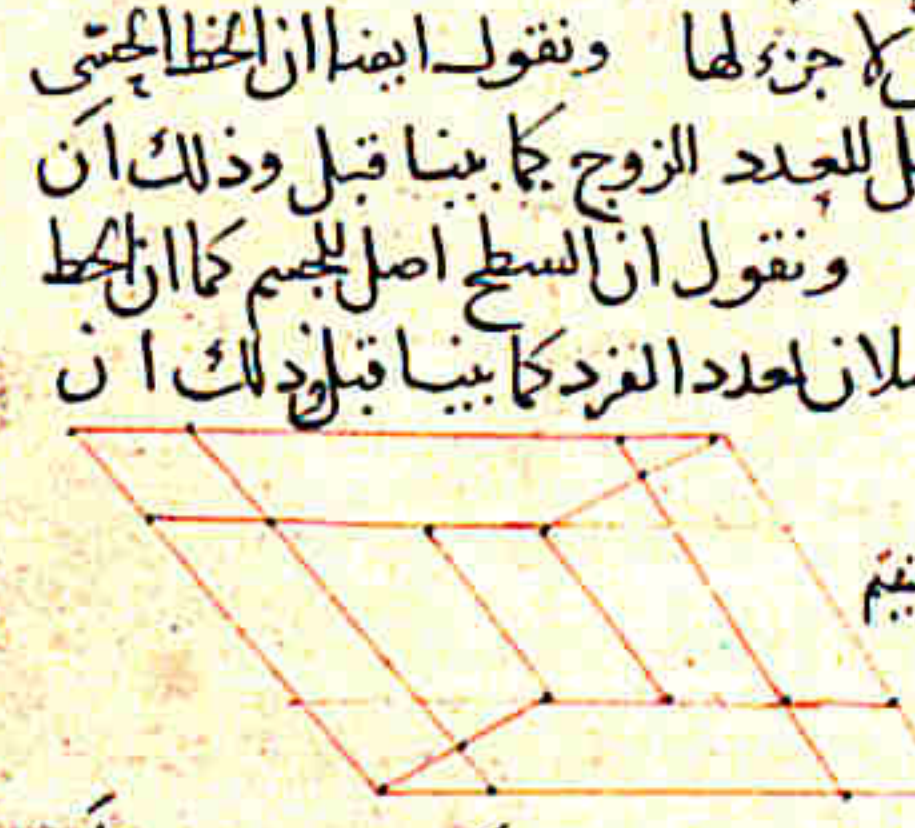 لا جزء لها ونقول ايضا ان الخط الحسّى
للعدد الزوج كما بينا قبل وذلك ان
ونقول ان السطح اصل للجسم كما ان الخط
لعدد الفرد كما بينا قبل وذلك ان